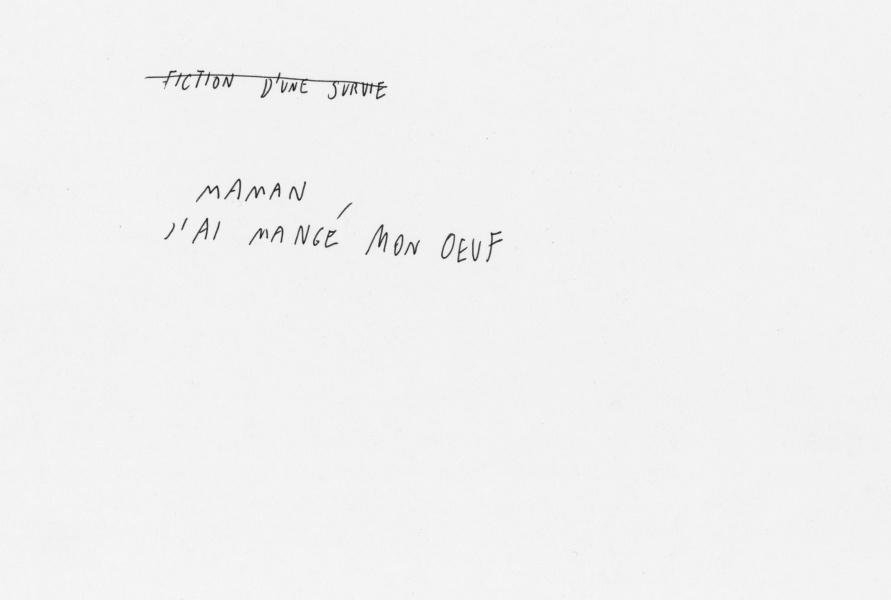 FICTION D'UNE SURVIE
MAMAN
J'AI MANGÉ MON OEUF